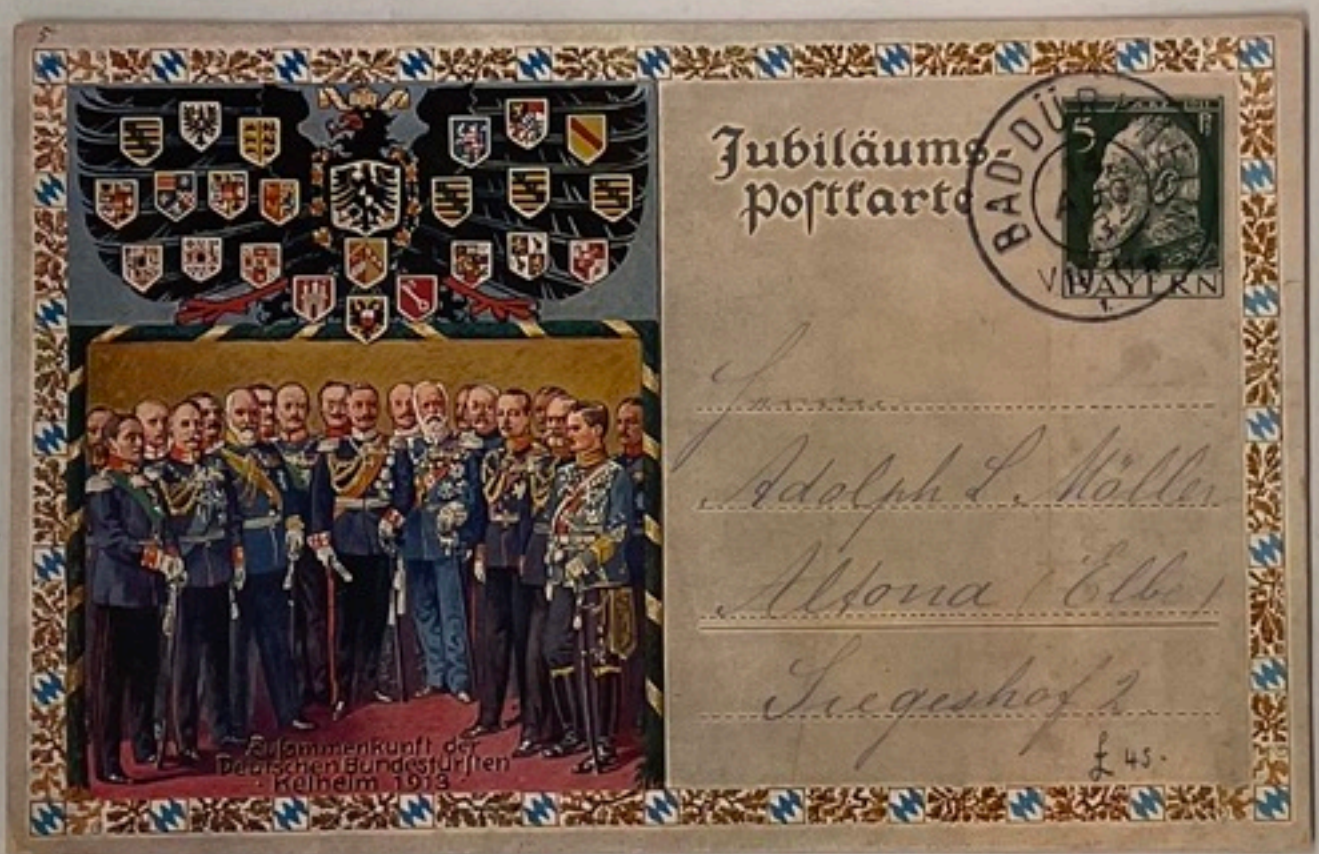 5
Jubiläums-
Postkarte
BAD DÜR
5
BAYERN
Adolph L. Möller
Altona (Elbe)
Siegeshof 2.
£ 45.
Zusammenkunft der
Deutschen Bundesfürsten
Kelheim 1913